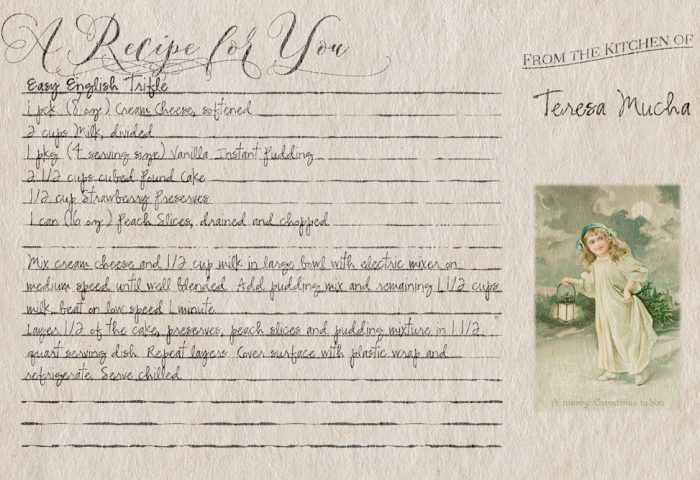 A Recipe for You
FROM THE KITCHEN OF
Teresa Mucha
Easy English Trifle
1 pck (8 oz.) Cream Cheese, softened
2 cups Milk, divided
1 pkg (4 serving size) Vanilla Instant Pudding
2 1/2 cups cubed Pound Cake
1/2 cup Strawberry Preserves
1 can (16 oz.) Peach Slices, drained and chopped
Mix cream cheese and 1/2 cup milk in large bowl with electric mixer on
medium speed until well blended. Add pudding mix and remaining 1 1/2 cups
milk; beat on low speed 1 minute.
Layer 1/2 of the cake, preserves, peach slices and pudding mixture in 1 1/2
quart serving dish. Repeat layers. Cover surface with plastic wrap and
refrigerate. Serve chilled.
A merry Christmas to You